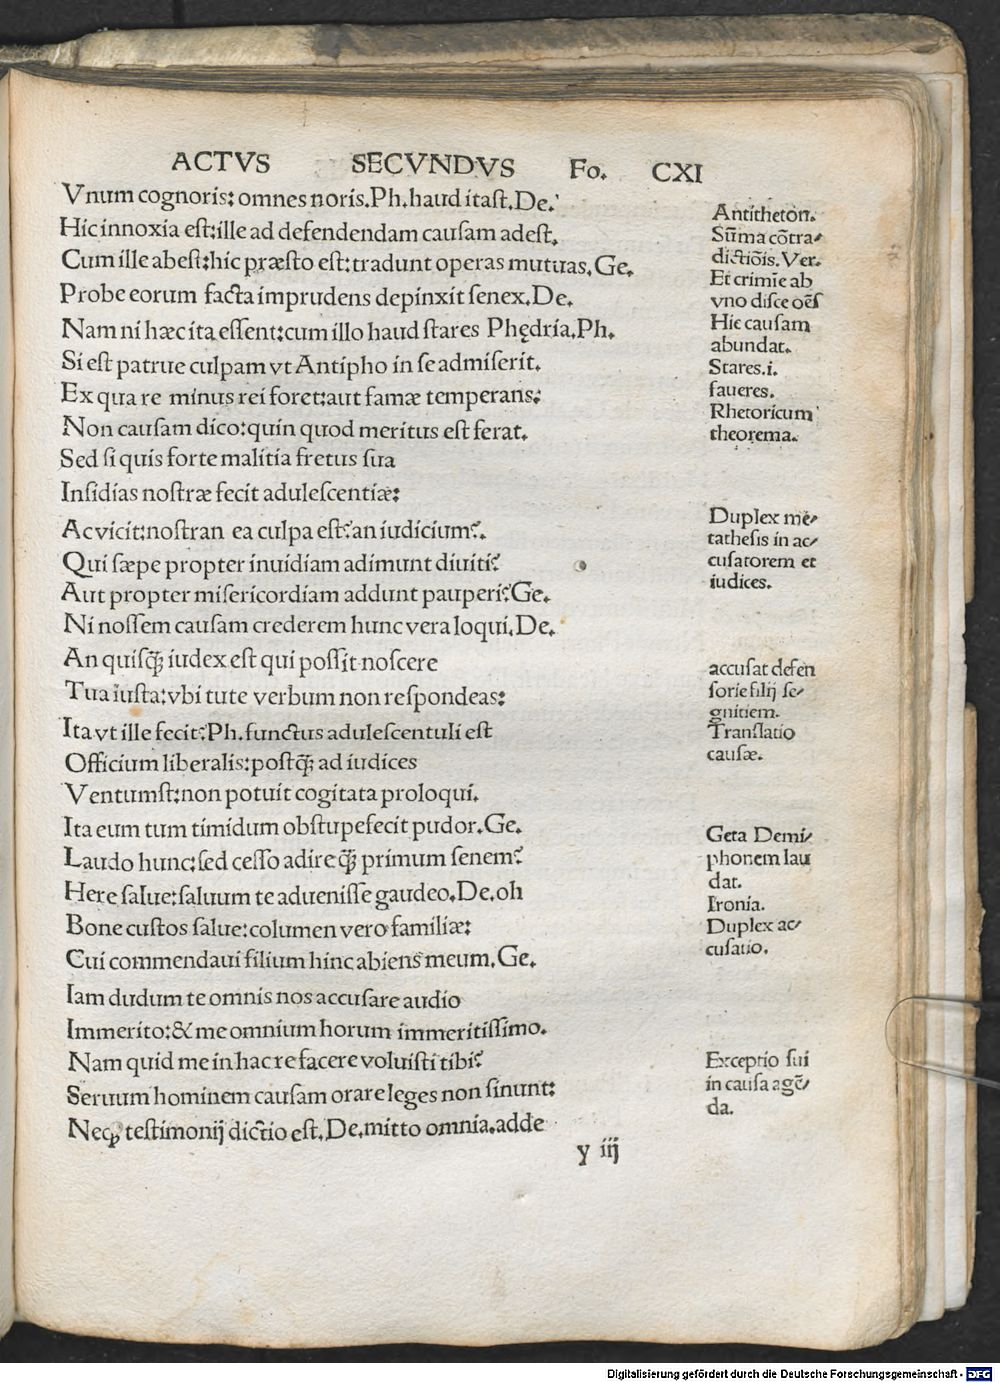 ACTVS SECVNDVS Fo. CXI
Vnum cognoris: omnes noris. Ph. haud itast. De.
Hic innoxia est: ille ad defendendam causam adest.
Cum ille abest: hic præsto est: tradunt operas mutuas. Ge.
Probe eorum facta imprudens depinxit senex. De.
Nam ni hæc ita essent: cum illo haud stares Phędria. Ph.
Si est patrue culpam vt Antipho in se admiserit.
Ex qua re minus rei foret: aut famæ temperans:
Non causam dico: quin quod meritus est ferat.
Sed si quis forte malitia fretus sua
Insidias nostræ fecit adulescentiæ:
Ac vicit: nostran ea culpa est? an iudicium?.
Qui sæpe propter inuidiam adimunt diuiti?
Aut propter misericordiam addunt pauperi? Ge.
Ni nossem causam crederem hunc vera loqui. De.
An quisꝗ̃ iudex est qui possit noscere
Tua iusta: vbi tute verbum non respondeas:
Ita vt ille fecit? Ph. functus adulescentuli est
Officium liberalis: postꝗ̃ ad iudices
Ventumst: non potuit cogitata proloqui.
Ita eum tum timidum obstupefecit pudor. Ge.
Laudo hunc: sed cesso adire ꝗ̃ primum senem?
Here salue: saluum te aduenisse gaudeo. De. oh
Bone custos salue: columen vero familiæ:
Cui commendaui filium hinc abiens meum. Ge.
Iam dudum te omnis nos accusare audio
Immerito: & me omnium horum immeritissimo.
Nam quid me in hac re facere voluisti tibi?
Seruum hominem causam orare leges non sinunt:
Neqꝫ testimonij dictio est. De. mitto omnia. adde
y iij
Antitheton.
Sūma cōtra-
dictiōis. Ver.
Et crimīe ab
vno disce oēs
Hic causam
abundat.
Stares. i.
faueres.
Rhetoricum
theorema.
Duplex me-
tathesis in ac-
cusatorem et
iudices.
accusat defen
sorie filij se-
gnitiem.
Translatio
causæ.
Geta Demi-
phonem lau
dat.
Ironia.
Duplex ac-
cusatio.
Exceptio sui
in causa agē-
da.
Digitalisierung gefördert durch die Deutsche Forschungsgemeinschaft - DFG